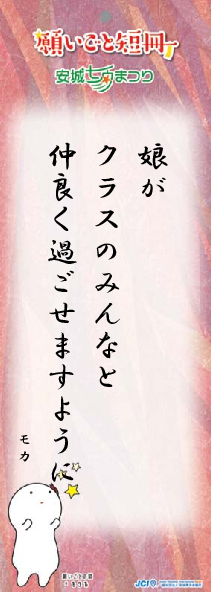 願いごと短冊
安城七夕まつり
娘が
クラスのみんなと
仲良く過ごせますように
モカ
願いごと短冊
JCI